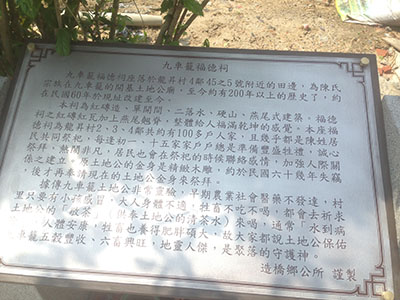 九車籠福德祠
九車籠福德祠座落於龍昇村4鄰45之5號附近的田邊，為陳氏
宗族在九車籠的開基土地公廟，至今約有200年以上的歷史了，約
在民國60年於現址改建至今。
本祠為紅磚造，單開間，二落水，硬山、燕尾式建築，福德
祠之紅磚紅瓦加上燕尾翹脊，整體給人福滿乾坤的感覺。本座福
德祠為龍昇村2、3、4鄰共約有100多戶人家，且幾乎都是陳姓居
民共同祭祀，每逢初一、十五家家戶戶總是準備豐盛牲禮，誠心
祭拜，熱鬧非凡，居民也會在祭祀的時候聯絡感情，加強人際關
係之建立。原土地公的金身是精緻木雕，約於民國六十幾年失竊
，後才再奉請現在的土地公金身來祭拜。
據傳九車籠土地公非常靈驗，早期農業社會醫藥不發達，村
里只要有小孩感冒、大人身體不適、牲畜不吃不喝，都會去祈求
土地公的「敬茶」（供奉土地公的清茶水）來喝，通常「水到病
人體安康，牲畜也養得肥胖碩大，故大家都說土地公保佑
車籠五穀豐收、六畜興旺，地靈人傑，是聚落的守護神。
造橋鄉公所 謹製